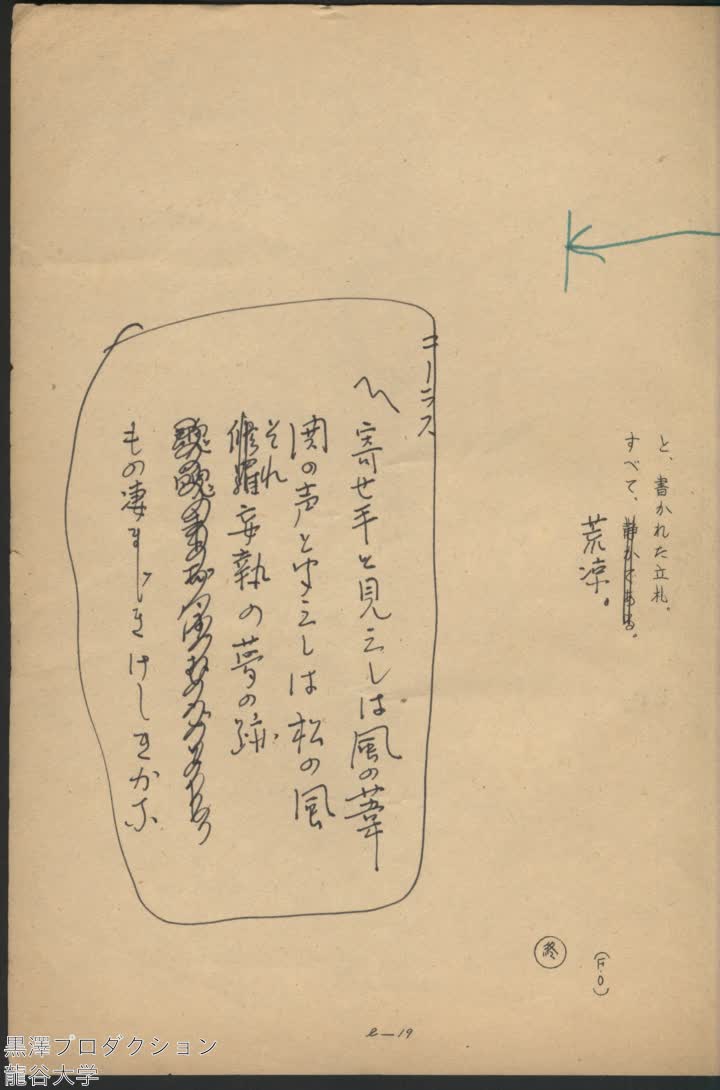 と、書かれた立札。
すべて、静かである。
荒涼。
コーラス
〽寄せ手と見えしは風の葦
閧の声と聞えしは松の風
それ
修羅妄執の夢の跡
もの凄まじきけしきかな
(F・O)
終
e—19
黒澤プロダクション
龍谷大学